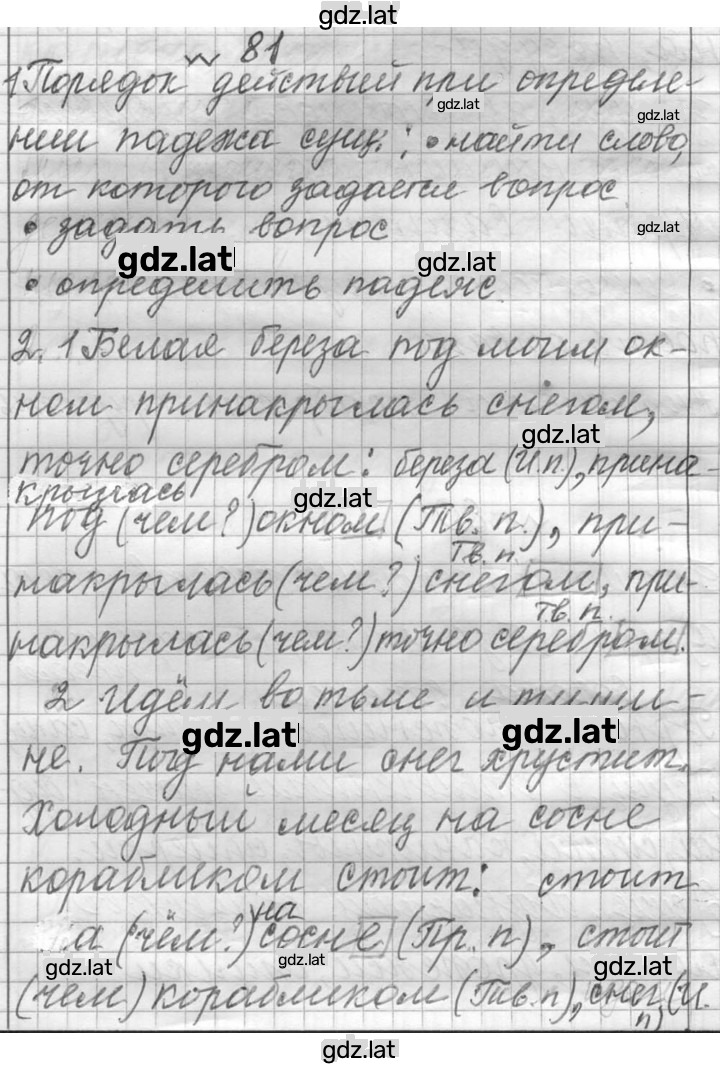 gdz.lat
№ 81
1 Порядок действий при определе-
gdz.lat
нии падежа сущ.: • найти слово,
gdz.lat
от которого задается вопрос
• задать вопрос
gdz.lat
gdz.lat
gdz.lat
• определить падеж.
2. 1 Белая береза под моим ок-
ном принакрылась снегом,
gdz.lat
точно серебром: береза (И.п.), прина-
крылась
gdz.lat
под (чем?) окном (Тв. п.), при-
Тв. п.
накрылась (чем?) снегом, при-
Тв. п.
накрылась (чем?) точно серебром.
2 Идём во тьме и тиши-
gdz.lat
gdz.lat
не. Под нами снег хрустит.
Холодный месяц на сосне
корабликом стоит: стоит
на
на (чём?) сосне (Пр. п), стоит
gdz.lat
gdz.lat
gdz.lat
(чем) корабликом (Тв. п), снег (И.
п)
gdz.lat